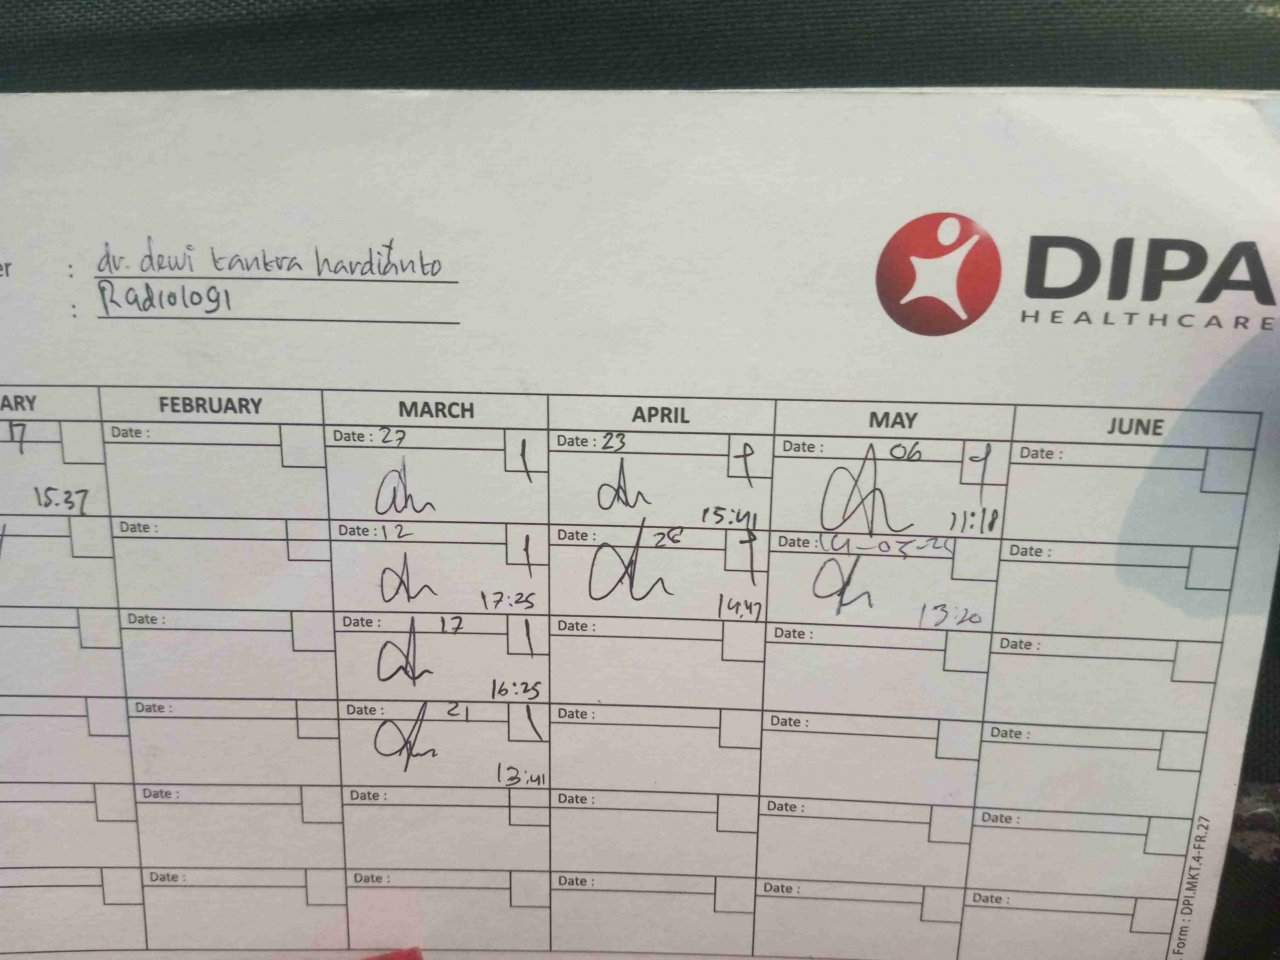 er : dr. dewi tantra hardianto
: Radiologi
DIPA
HEALTHCARE
ARY FEBRUARY MARCH APRIL MAY JUNE
17 Date : Date : 27 Date : 23 Date : 06 Date :
15.37 15:41 11:18
Date : Date : 12 Date : 28 Date : Date :
17:25 14.47 13:20
Date : Date : 17 Date : Date : Date :
16:25
Date : Date : 21 Date : Date : Date :
13:41
Date : Date : Date : Date : Date :
Date : Date : Date : Date : Date :
Form : DPI.MKT.4-FR.27